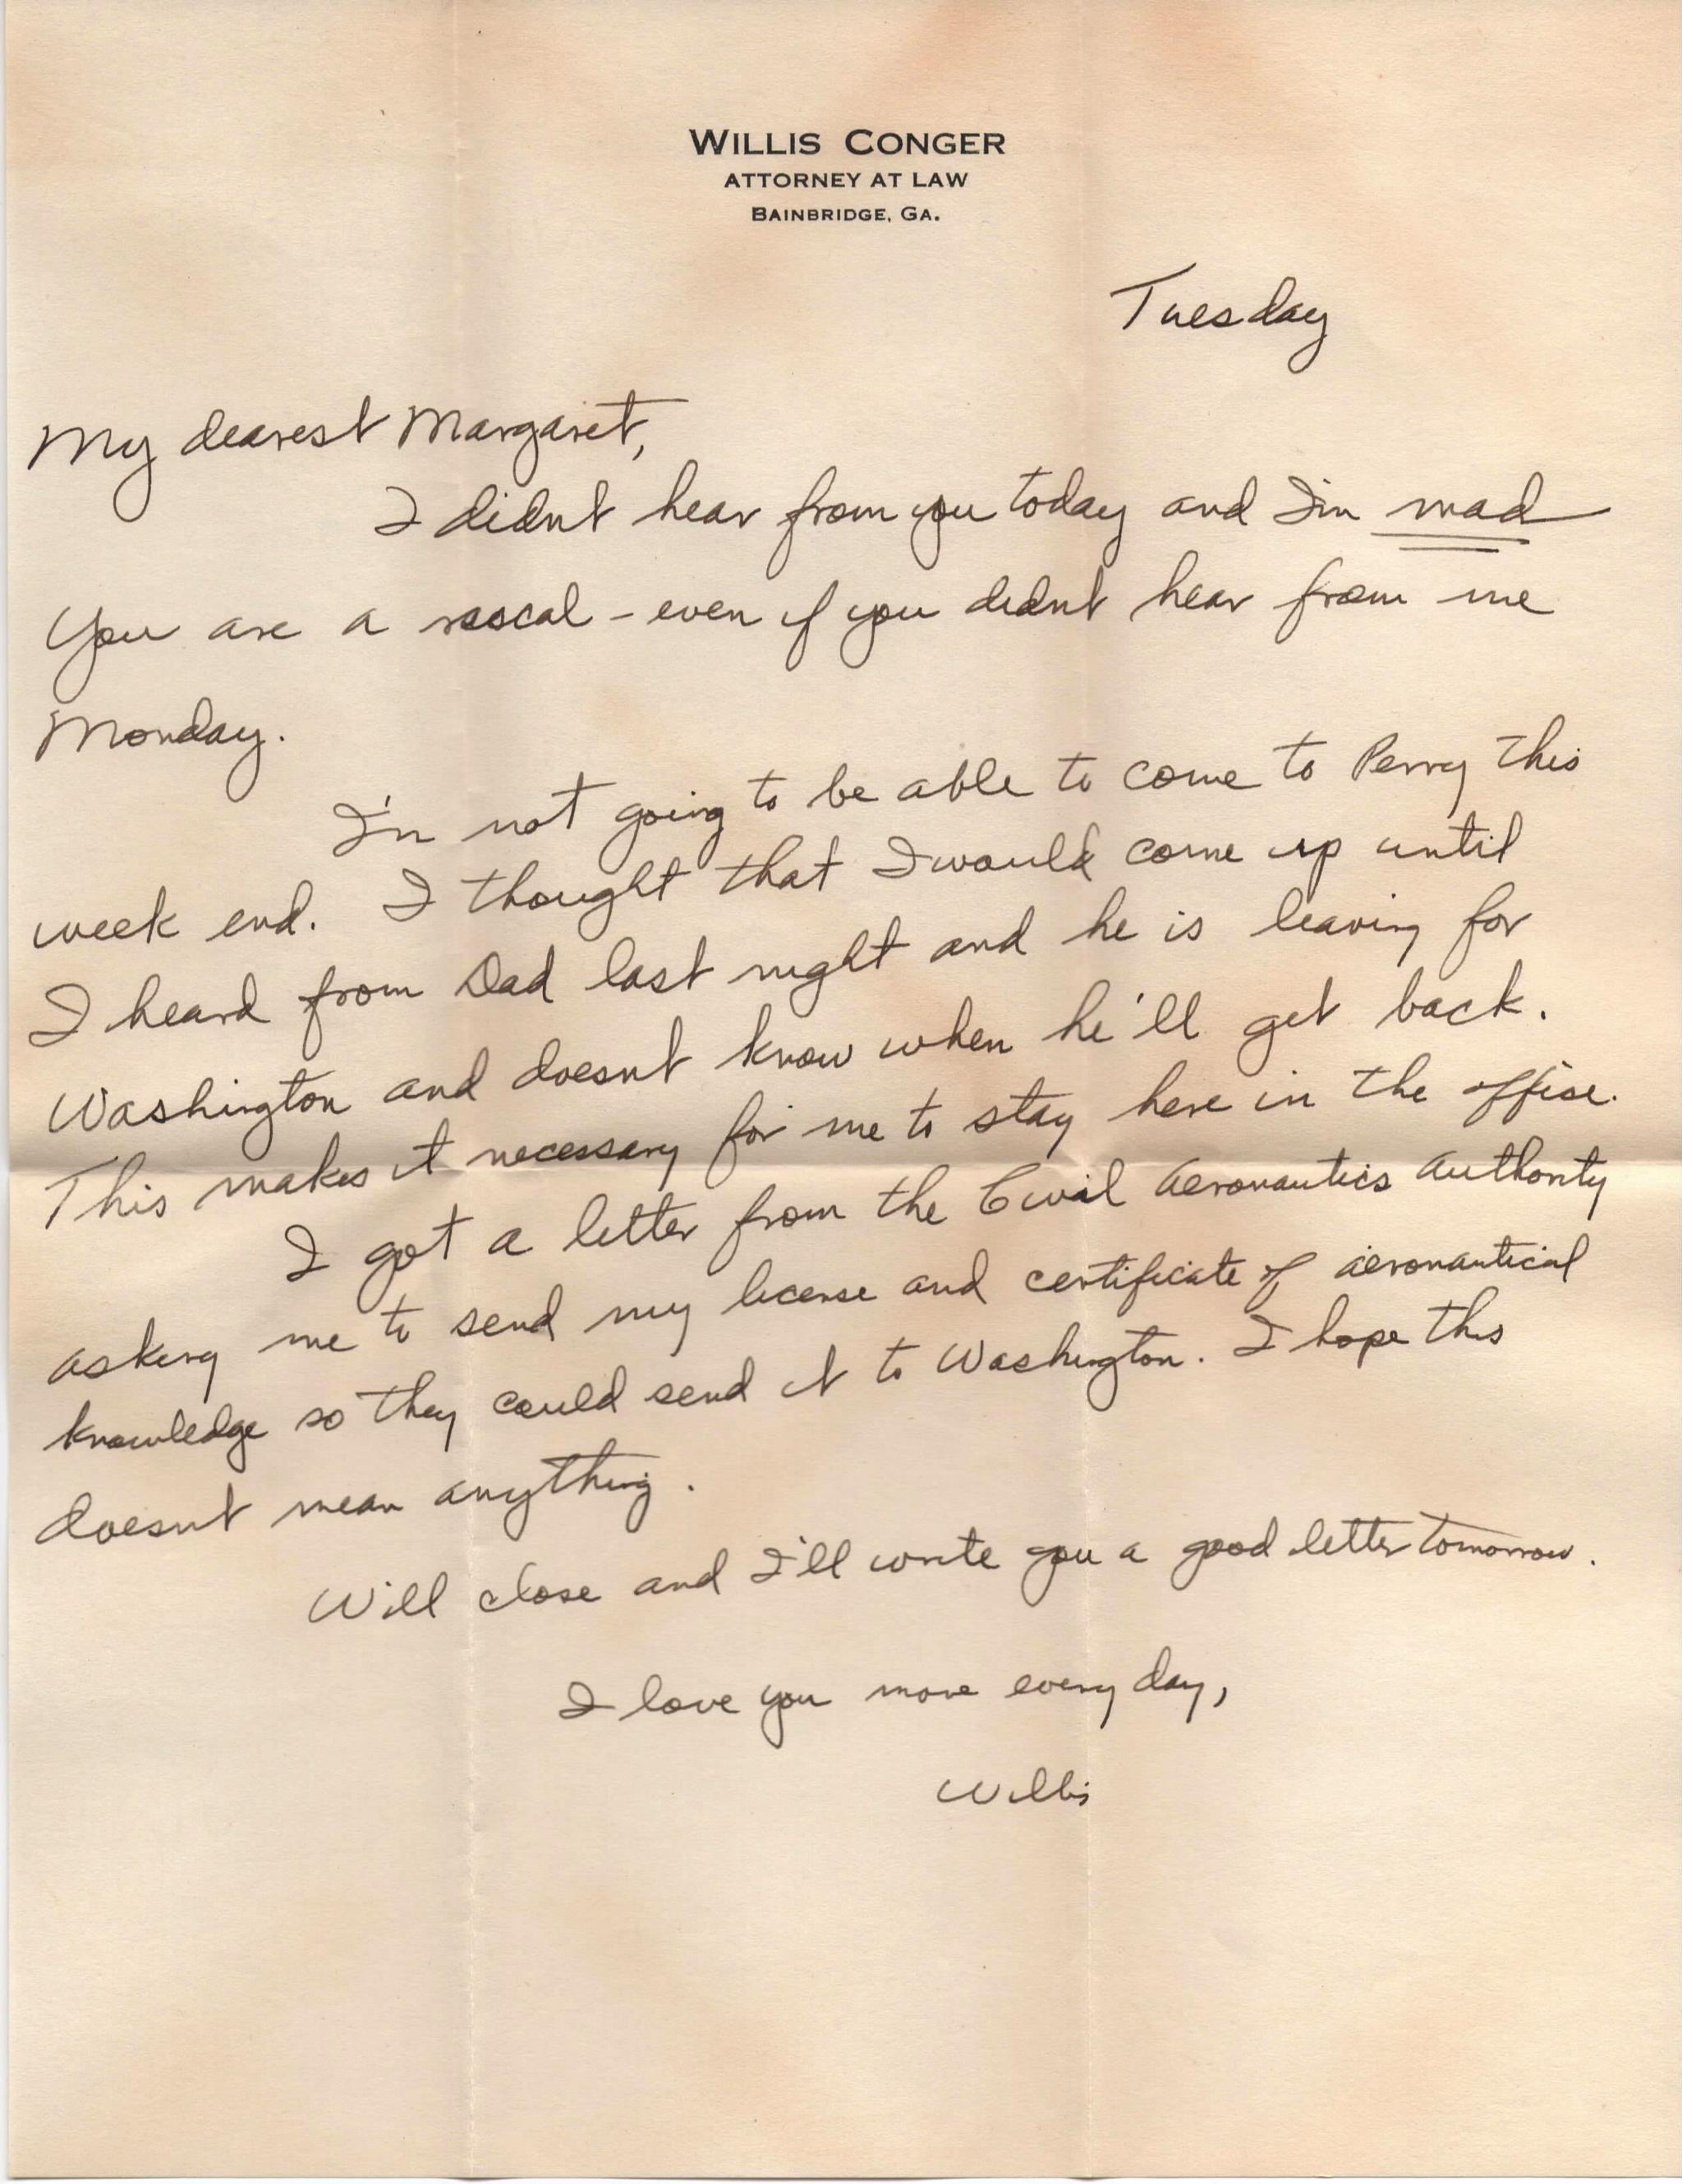 WILLIS CONGER
ATTORNEY AT LAW
BAINBRIDGE, GA.
Tuesday
My dearest Margaret,
I didnt hear from you today and I'm mad
You are a rascal - even if you didnt hear from me
Monday.
I'm not going to be able to come to Perry this
week end. I thought that I would come up until
I heard from Dad last night and he is leaving for
Washington and doesnt know when he'll get back.
This makes it necessary for me to stay here in the office.
I got a letter from the Civil Aeronautics Authority
asking me to send my license and certificate of aeronautical
knowledge so they could send it to Washington. I hope this
doesnt mean anything.
Will close and I'll write you a good letter tomorrow.
I love you more every day,
Willis